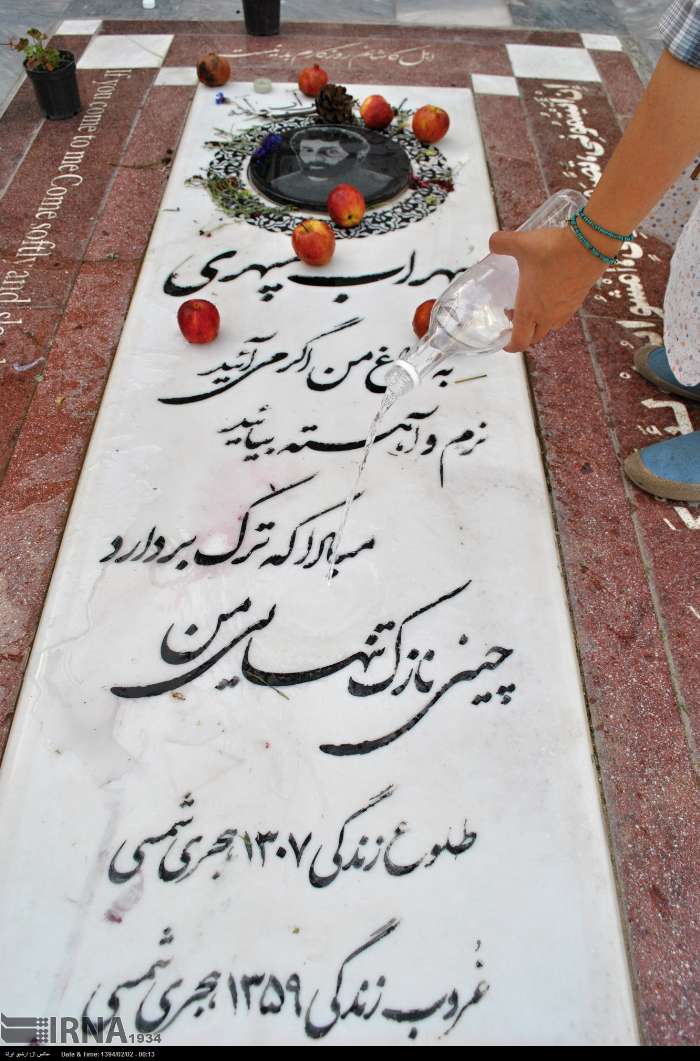 سهراب سپهری
به سراغ من اگر می آئید
نرم و آهسته بیائید
مبادا که ترک بردارد
چینی نازک تنهایی من
طلوع زندگی ۱۳۰۷ هجری شمسی
غروب زندگی ۱۳۵۹ هجری شمسی
If you come to me Come softly and sl
IRNA 1934
عکس از: آرشیو ایرنا
Date & Time: 1394/02/02 - 00:13